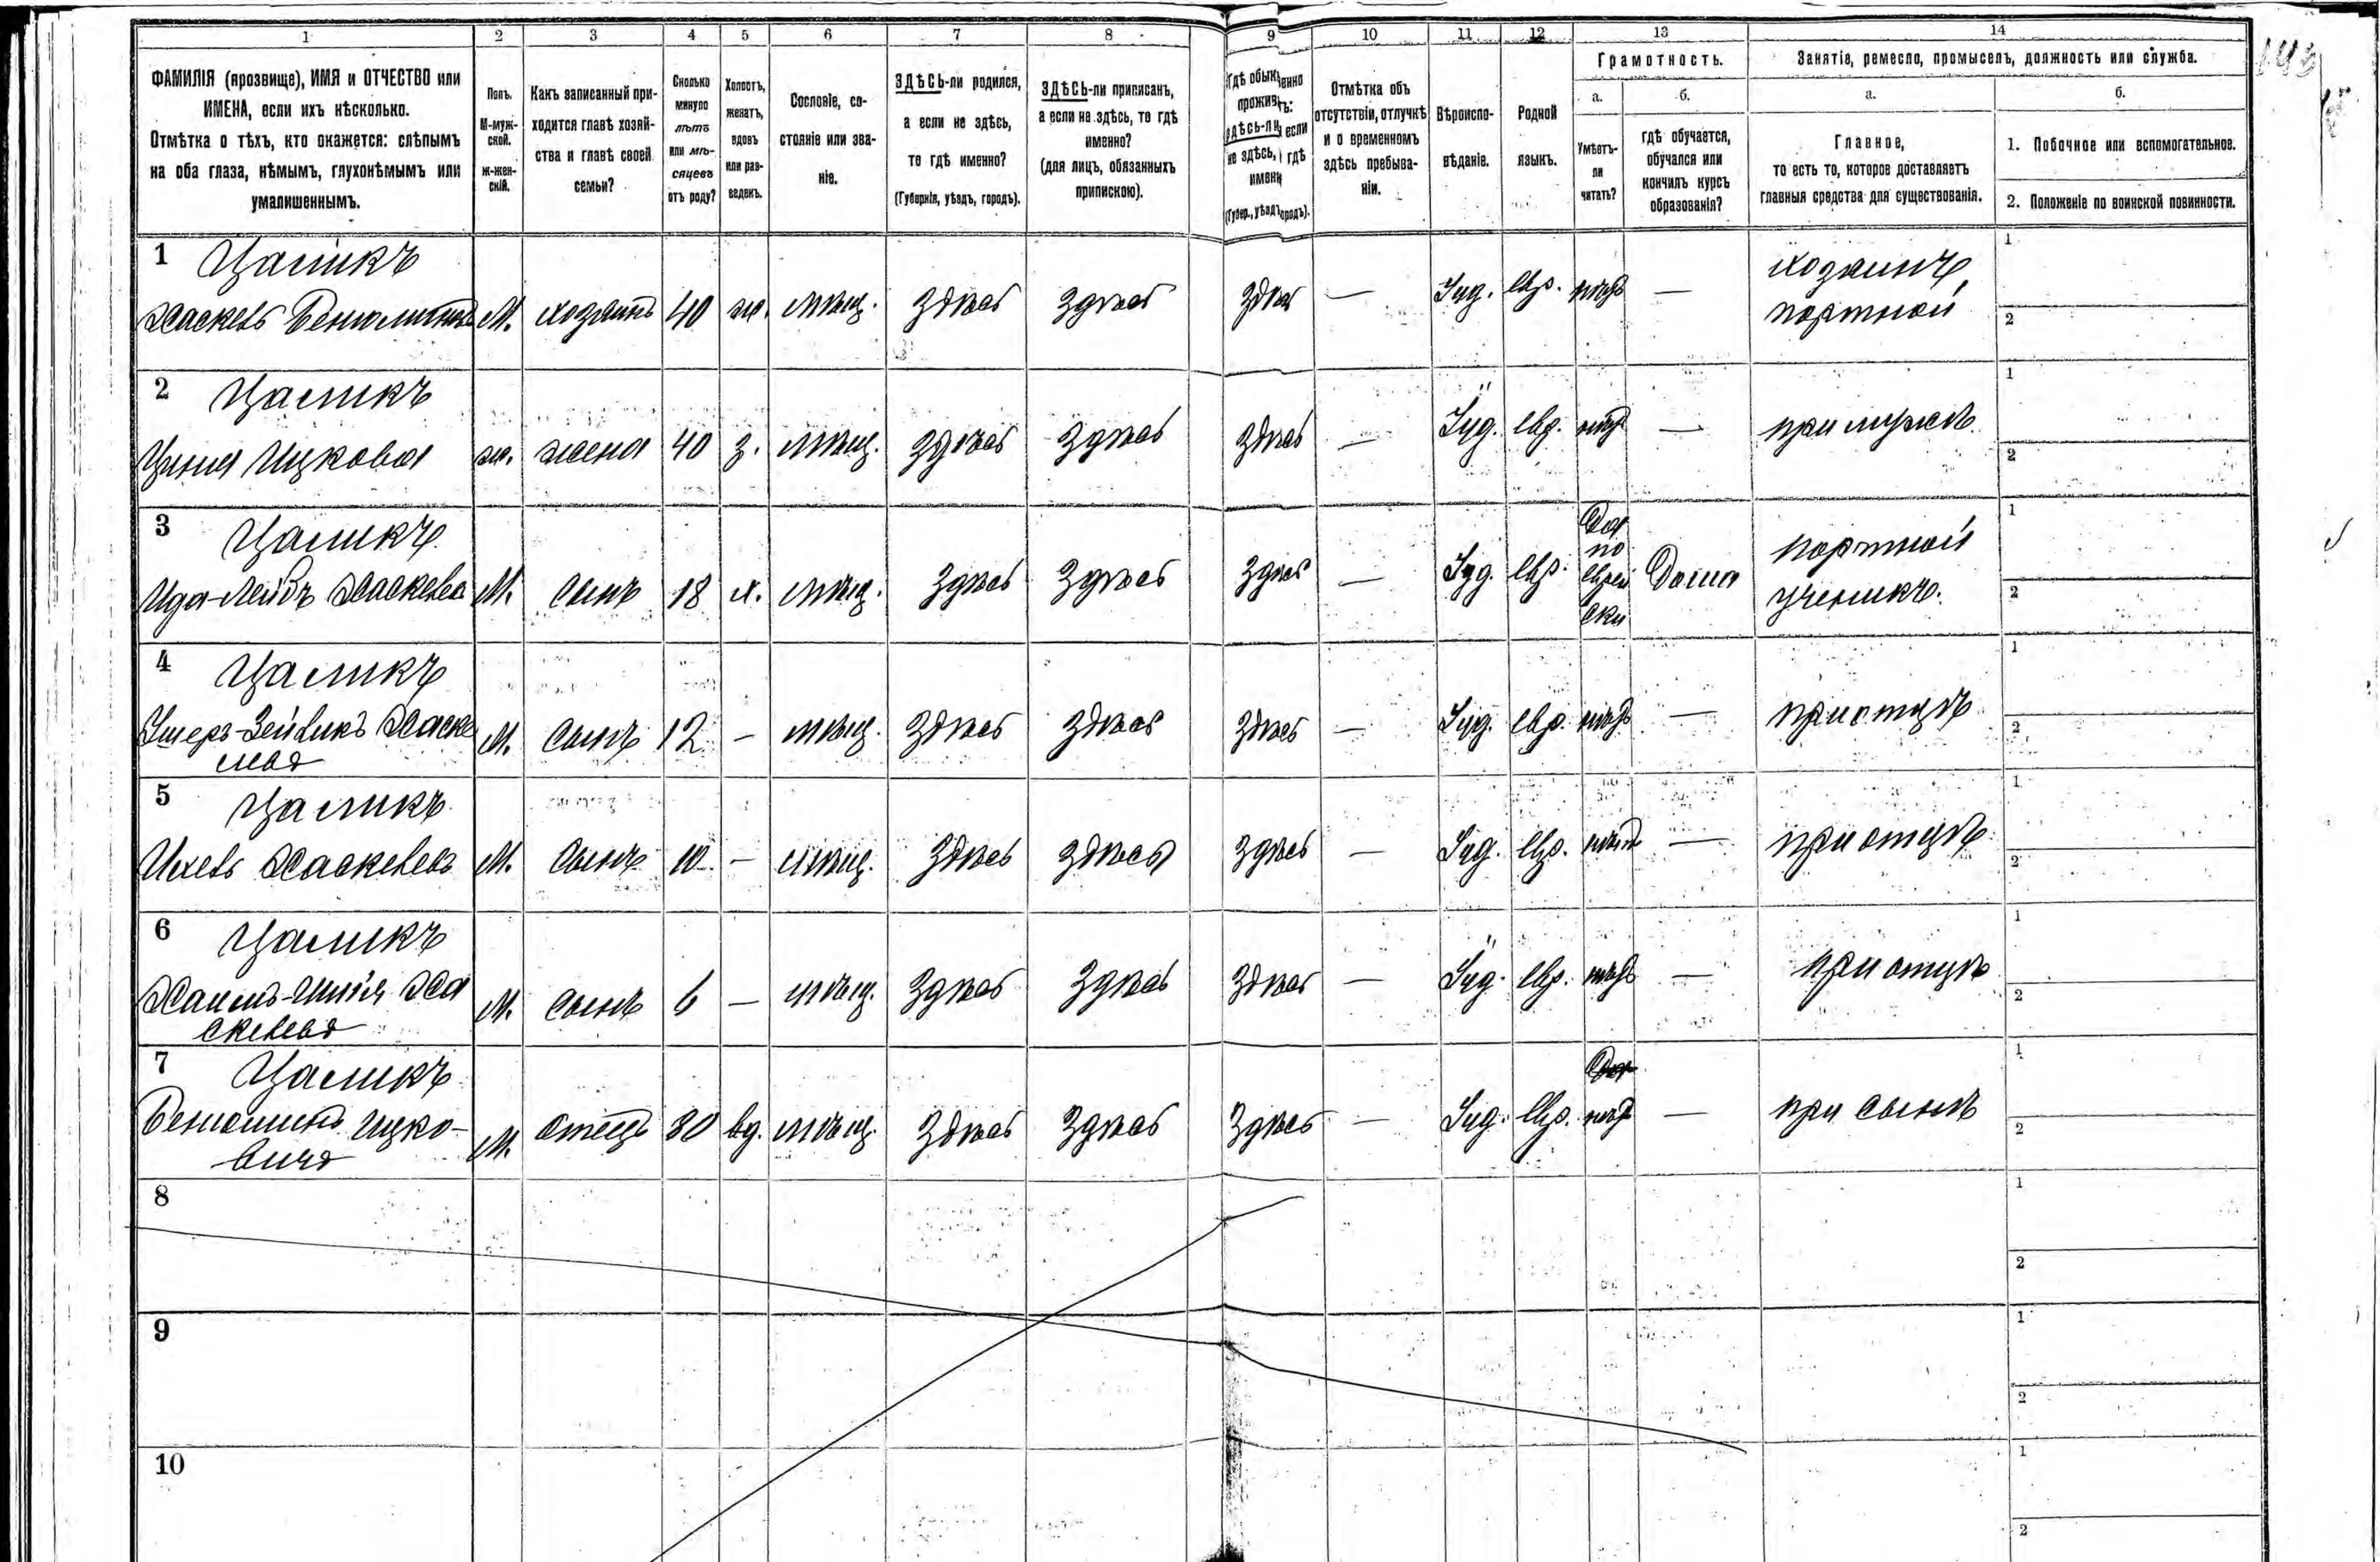 1 2 3 4 5 6 7 8 9 10 11 12 13 14
ФАМИЛІЯ (прозвище), ИМЯ и ОТЧЕСТВО или
ИМЕНА, если ихъ нѣсколько.
Отмѣтка о тѣхъ, кто окажется: слѣпымъ
на оба глаза, нѣмымъ, глухонѣмымъ или
умалишеннымъ.
Полъ.
М-муж-
ской.
Ж-жен-
скій.
Какъ записанный при-
ходится главѣ хозяй-
ства и главѣ своей
семьи?
Сколько
минуло
лѣтъ
или мѣ-
сяцевъ
отъ роду?
Холостъ,
женатъ,
вдовъ
или раз-
веденъ.
Сословіе, со-
стояніе или зва-
ніе.
ЗДѢСЬ-ли родился,
а если не здѣсь,
то гдѣ именно?
(Губернія, уѣздъ, городъ).
ЗДѢСЬ-ли приписанъ,
а если не здѣсь, то гдѣ
именно?
(для лицъ, обязанныхъ
припискою).
Гдѣ обыкновенно
проживаетъ:
здѣсь-ли, если
не здѣсь, гдѣ
именно
(Губер., уѣздъ, городъ).
Отмѣтка объ
отсутствіи, отлучкѣ
и о временномъ
здѣсь пребыва-
ніи.
Вѣроиспо-
вѣданіе.
Родной
языкъ.
Грамотность.
а.
Умѣетъ-
ли
читать?
б.
гдѣ обучается,
обучался или
кончилъ курсъ
образованія?
Занятіе, ремесло, промыселъ, должность или служба.
а.
Главное,
то есть то, которое доставляетъ
главныя средства для существованія.
б.
1. Побочное или вспомогательное.
2. Положеніе по воинской повинности.
1 Цаликъ
Хаскель М. хозяинъ 40 ж. мѣщ. здѣсь здѣсь здѣсь — Іуд. евр. нѣтъ — хозяинъ
портной
1
2
2 Цаликъ
Ицкова ж. жена 40 з. мѣщ. здѣсь здѣсь здѣсь — Іуд. евр. нѣтъ — при мужѣ
1
2
3 Цаликъ
Лейбъ Хаскелев М. сынъ 18 х. мѣщ. здѣсь здѣсь здѣсь — Іуд. евр. Да
по
еврей
ски
Дома
портной
ученикъ.
1
2
4 Цаликъ
М. сынъ 12 — мѣщ. здѣсь здѣсь здѣсь — Іуд. евр. нѣтъ — при отцѣ
1
2
5 Цаликъ
Хаскелев М. сынъ 10 — мѣщ. здѣсь здѣсь здѣсь — Іуд. евр. нѣтъ — при отцѣ
1
2
6 Цаликъ
Ха
скелевъ
М. сынъ 6 — мѣщ. здѣсь здѣсь здѣсь — Іуд. евр. нѣтъ — при отцѣ
1
2
7 Цаликъ
Беньоминъ Ицко-
вичъ
М. отецъ 80 вд. мѣщ. здѣсь здѣсь здѣсь — Іуд. евр. нѣтъ — при сынѣ
1
2
8
1
2
9
1
2
10
1
2